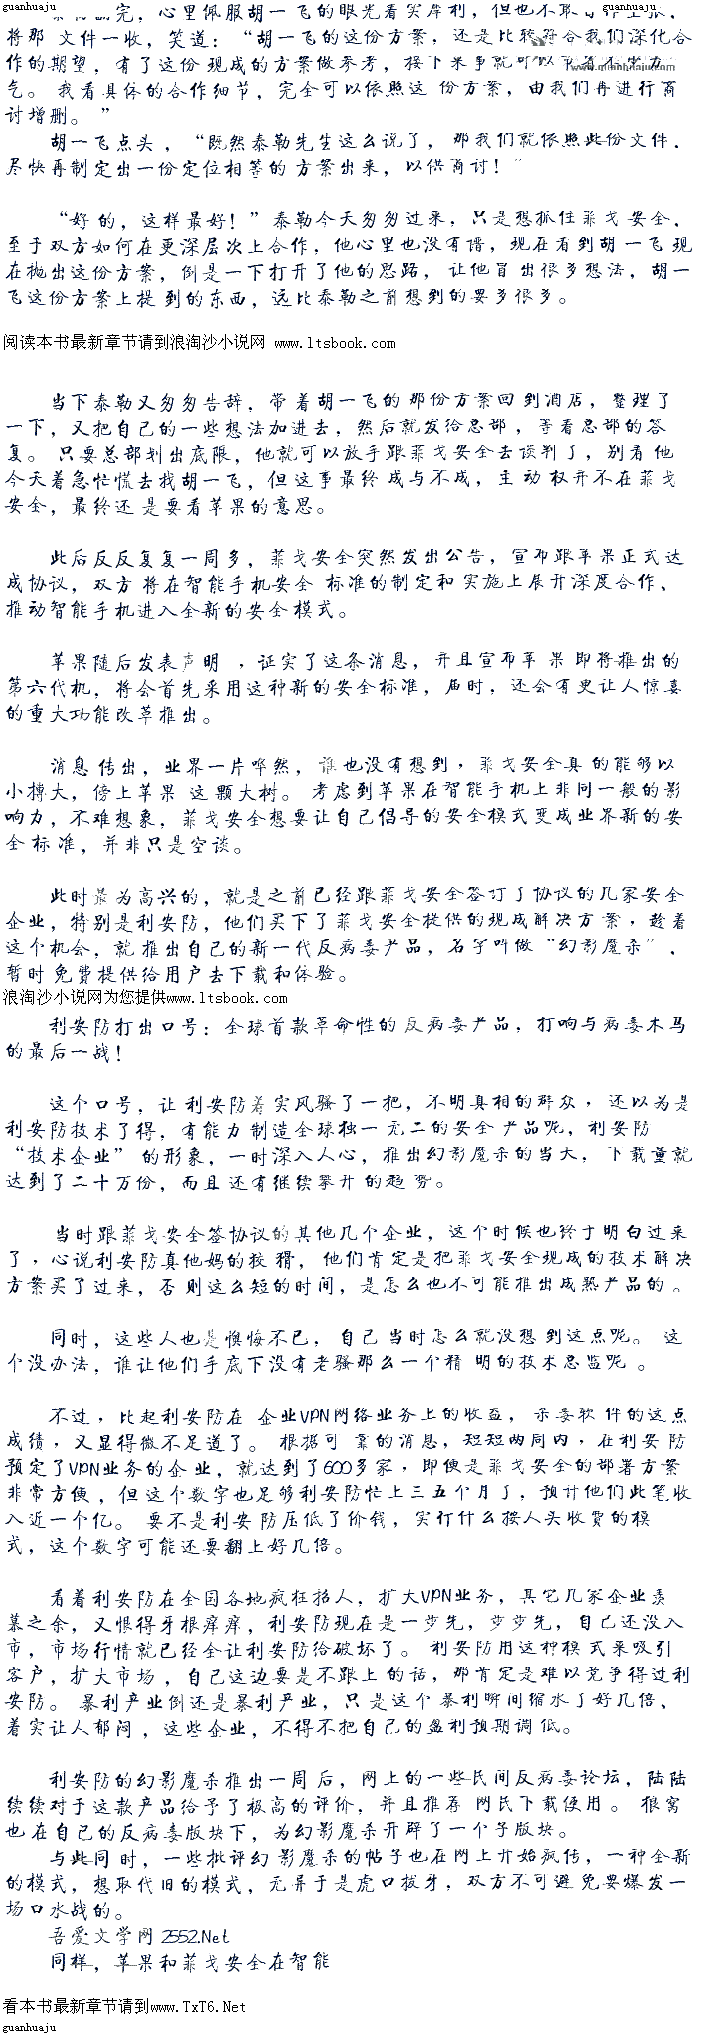 guanhuaju guanhuaju
翻完，心里佩服胡一飞的眼光看实犀利，但也不敢
将那 文件一收，笑道：“胡一飞的这份方案，还是比较符合我们深化合
作的期望，有了这份 现成的方案做参考，接下来事就可以
气。 我看具体的合作细节，完全可以依照这 份方案，由我们再进行商
讨增删。”
胡一飞点头 ，“既然泰勒先生这么说了，那我们就依照此份文件．
尽快再制定出一份定位相等的 方案出来，以供商讨！”
“好 的，这样最好！”泰勒今天匆匆过来，只是想抓住菲戈 安全．
至于双方如何在更深层次上合作，他心里也没有谱，现在看到胡 一飞 现
在抛出这份方案，倒是一下打开了他的思路， 让他冒 出很多想法，胡一
飞这份方案上提 到的东西，远比泰勒之前想到的要多很多。
阅读本书最新章节请到浪淘沙小说网 www.ltsbook.com
当下泰勒又匆匆告辞，带 着胡一飞的 那份方案回 到酒店，整理了
一下，又把自己的一些想法加进去，然后就发给总部 ，等着总部的答
复。 只要总部划出底限，他就可以放手跟菲戈安全去谈判了，别看他
今天着急忙慌去找胡一飞，但这事最终 成与不成，主动 权并不在菲戈
安全，最终还 是要看苹果的意思。
此后反反复复一周多，菲戈安全突然发出公告，宣布跟苹果正式达
成协议，双方 将在智能手机安全 标准的制定和 实施上展开深度合作．
推动智能手机进入全新的安全 模式。
苹果随后发表声明 ，证实了这条消息，并且宣布苹 果 即将推出的
第六代机，将会首先采用这种新的安全标准，届时，还会有更让人惊喜
的重大功能改革推出。
消息 传出，业界一片哗然，谁也没有想到，菲戈安全真 的能够以
小搏大，傍上苹果 这 颗大树。 考虑到苹果在智能手机上非同一般的影
响力，不难想象，菲戈安全想要让自己倡导的安全模式 变成业界新的安
全标准，并非只是空谈。
此时最为高兴的，就是之前已经跟菲戈安全签订了协议的几家安全
企业，特别是利安防，他们买下了菲戈安全提供的现成解决方案，趁着
这个机会，就 推出自己的新一代反病毒产品，名字叫做“幻影魔杀”．
暂时 免费提供给用户去下载和体验。
浪淘沙小说网为您提供www.ltsbook.com
利安防打出口号：全球首款革命性的 反病毒产品，打响与病毒木马
的最后一战！
这个口号，让 利安防着实风骚了一把，不明真相的群众 ，还以为是
利安防技术了得，有能力 制造全球独一无二的安全 产品呢，利安防
“技术企业” 的形象，一时深入人心，推出幻影魔杀的当天，下载量就
达到了二十万份，而且还有继续攀升 的趋 势。
当时跟菲戈安全签协议的其他几个企业，这个时候也终于明白过来
了，心说利安防真他妈的狡 猾，他们肯定是把菲戈安全现成的技术解决
方案买了过来，否 则这么短的时间，是怎么也不可能推出成熟产品的 。
同时，这些人也是懊悔不已， 自己 当时怎么就没想 到这点呢。 这
个没办法，谁让他们手底下没有老骚那么一个精 明的技术总监呢 。
不过，比起利安防在 企业VPN网络业务上的收益，杀毒软 件的这点
成绩，又显得微不足道了。 根据可 靠的消息，短短两周内，在利安 防
预定了VPN业务的企 业，就达到了600多家，即便是菲戈安全的部署方案
非常方便 ，但这个数字也足够利安防忙上三五个月了，预计他们此笔收
入近一个亿。 要不是利安 防压低了价钱，实行什么按人头收费的模
式，这个数字可能还要翻上好几倍。
看着利安防在全国各地疯狂招人，扩大VPN业务，其它几家企业羡
慕之余，又恨得牙根痒痒，利安防现在是一步先，步步先，自己还没入
市，市场行情就已经全让利安防给破坏了。 利安防用这种模 式来吸引
客户，扩大市场 ，自己这边要是不跟上 的话，那肯定是难以竞争得过利
安防。 暴利产业倒还是暴利产业，只 是这个 暴利瞬间缩水了好几倍．
着实让人郁闷 ，这些企业，不得不把自己的盈利预期调 低。
利安防的幻影魔杀推出一周后，网上的一些民间反病毒论坛，陆陆
续续对于这款产品给予了极高的评价，并且推荐 网民下载使用 。 狼窝
也在自己的反病毒版块下，为幻影魔杀开辟了一个子版块。
与此同 时，一些批评幻 影魔杀的帖子也在网上开始疯传，一种全新
的模式，想取代旧的模式，无异于是虎口拔牙，双方不可避 免要爆发一
场口水战的。
吾爱文学网 2552.Net
同样，苹果和菲戈安全在智能
看本书最新章节请到www.TxT6.Net
guanhuaju